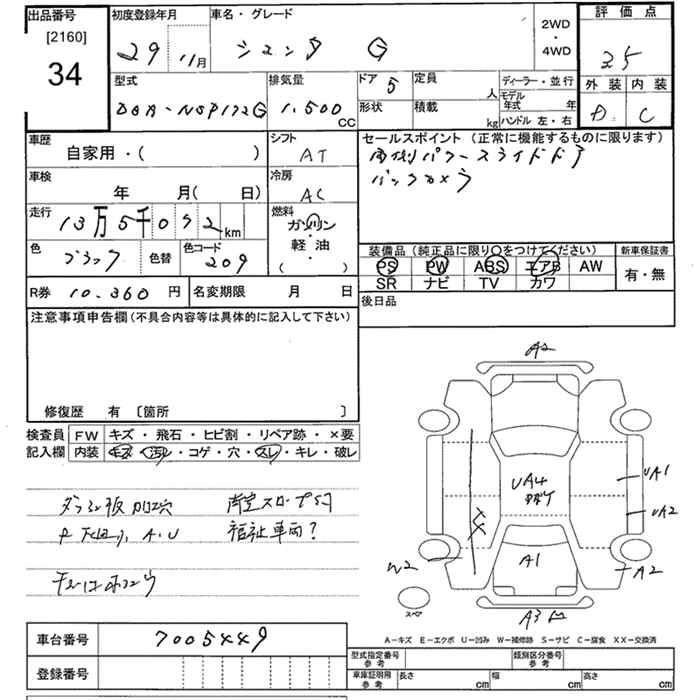 出品番号
[2160]
34
初度登録年月
29 11月
車名・グレード
シエンタ G
2WD
・
4WD
評価点
3.5
外装 内装
D C
型式
DBA-NSP172G
排気量
1,500 CC
ドア 5
定員 人
形状
積載 kg
ディーラー・並行
モデル年式 年
ハンドル 左・右
車歴
自家用・( )
シフト
AT
車検
年 月( 日)
冷房
AC
走行
13万5千092 km
燃料
ガソリン
軽油
・
( )
色
ブラック
色替
色コード
209
セールスポイント (正常に機能するものに限ります)
両側パワースライドドア
バックカメラ
装備品 (純正品に限り○をつけてください)
PS PW ABS エアB AW
SR ナビ TV カワ
新車保証書
有・無
R券 10,360 円
名変期限 月 日
後日品
注意事項申告欄 (不具合内容等は具体的に記入して下さい)
修復歴 有 〔箇所 〕
検査員記入欄
FW キズ・飛石・ヒビ割・リペア跡・×要
内装 キズ・汚れ・コゲ・穴・スレ・キレ・破レ
A2
UA4
UA1
UA2
A1
W2
A2
スペア
A3
福祉車両?
A.U
A-キズ E-エクボ U-凹み W-補修跡 S-サビ C-腐食 XX-交換済
車台番号 7005449
登録番号
型式指定番号 参考
類別区分番号 参考
車庫証明用 参考 長さ cm 幅 cm 高さ cm